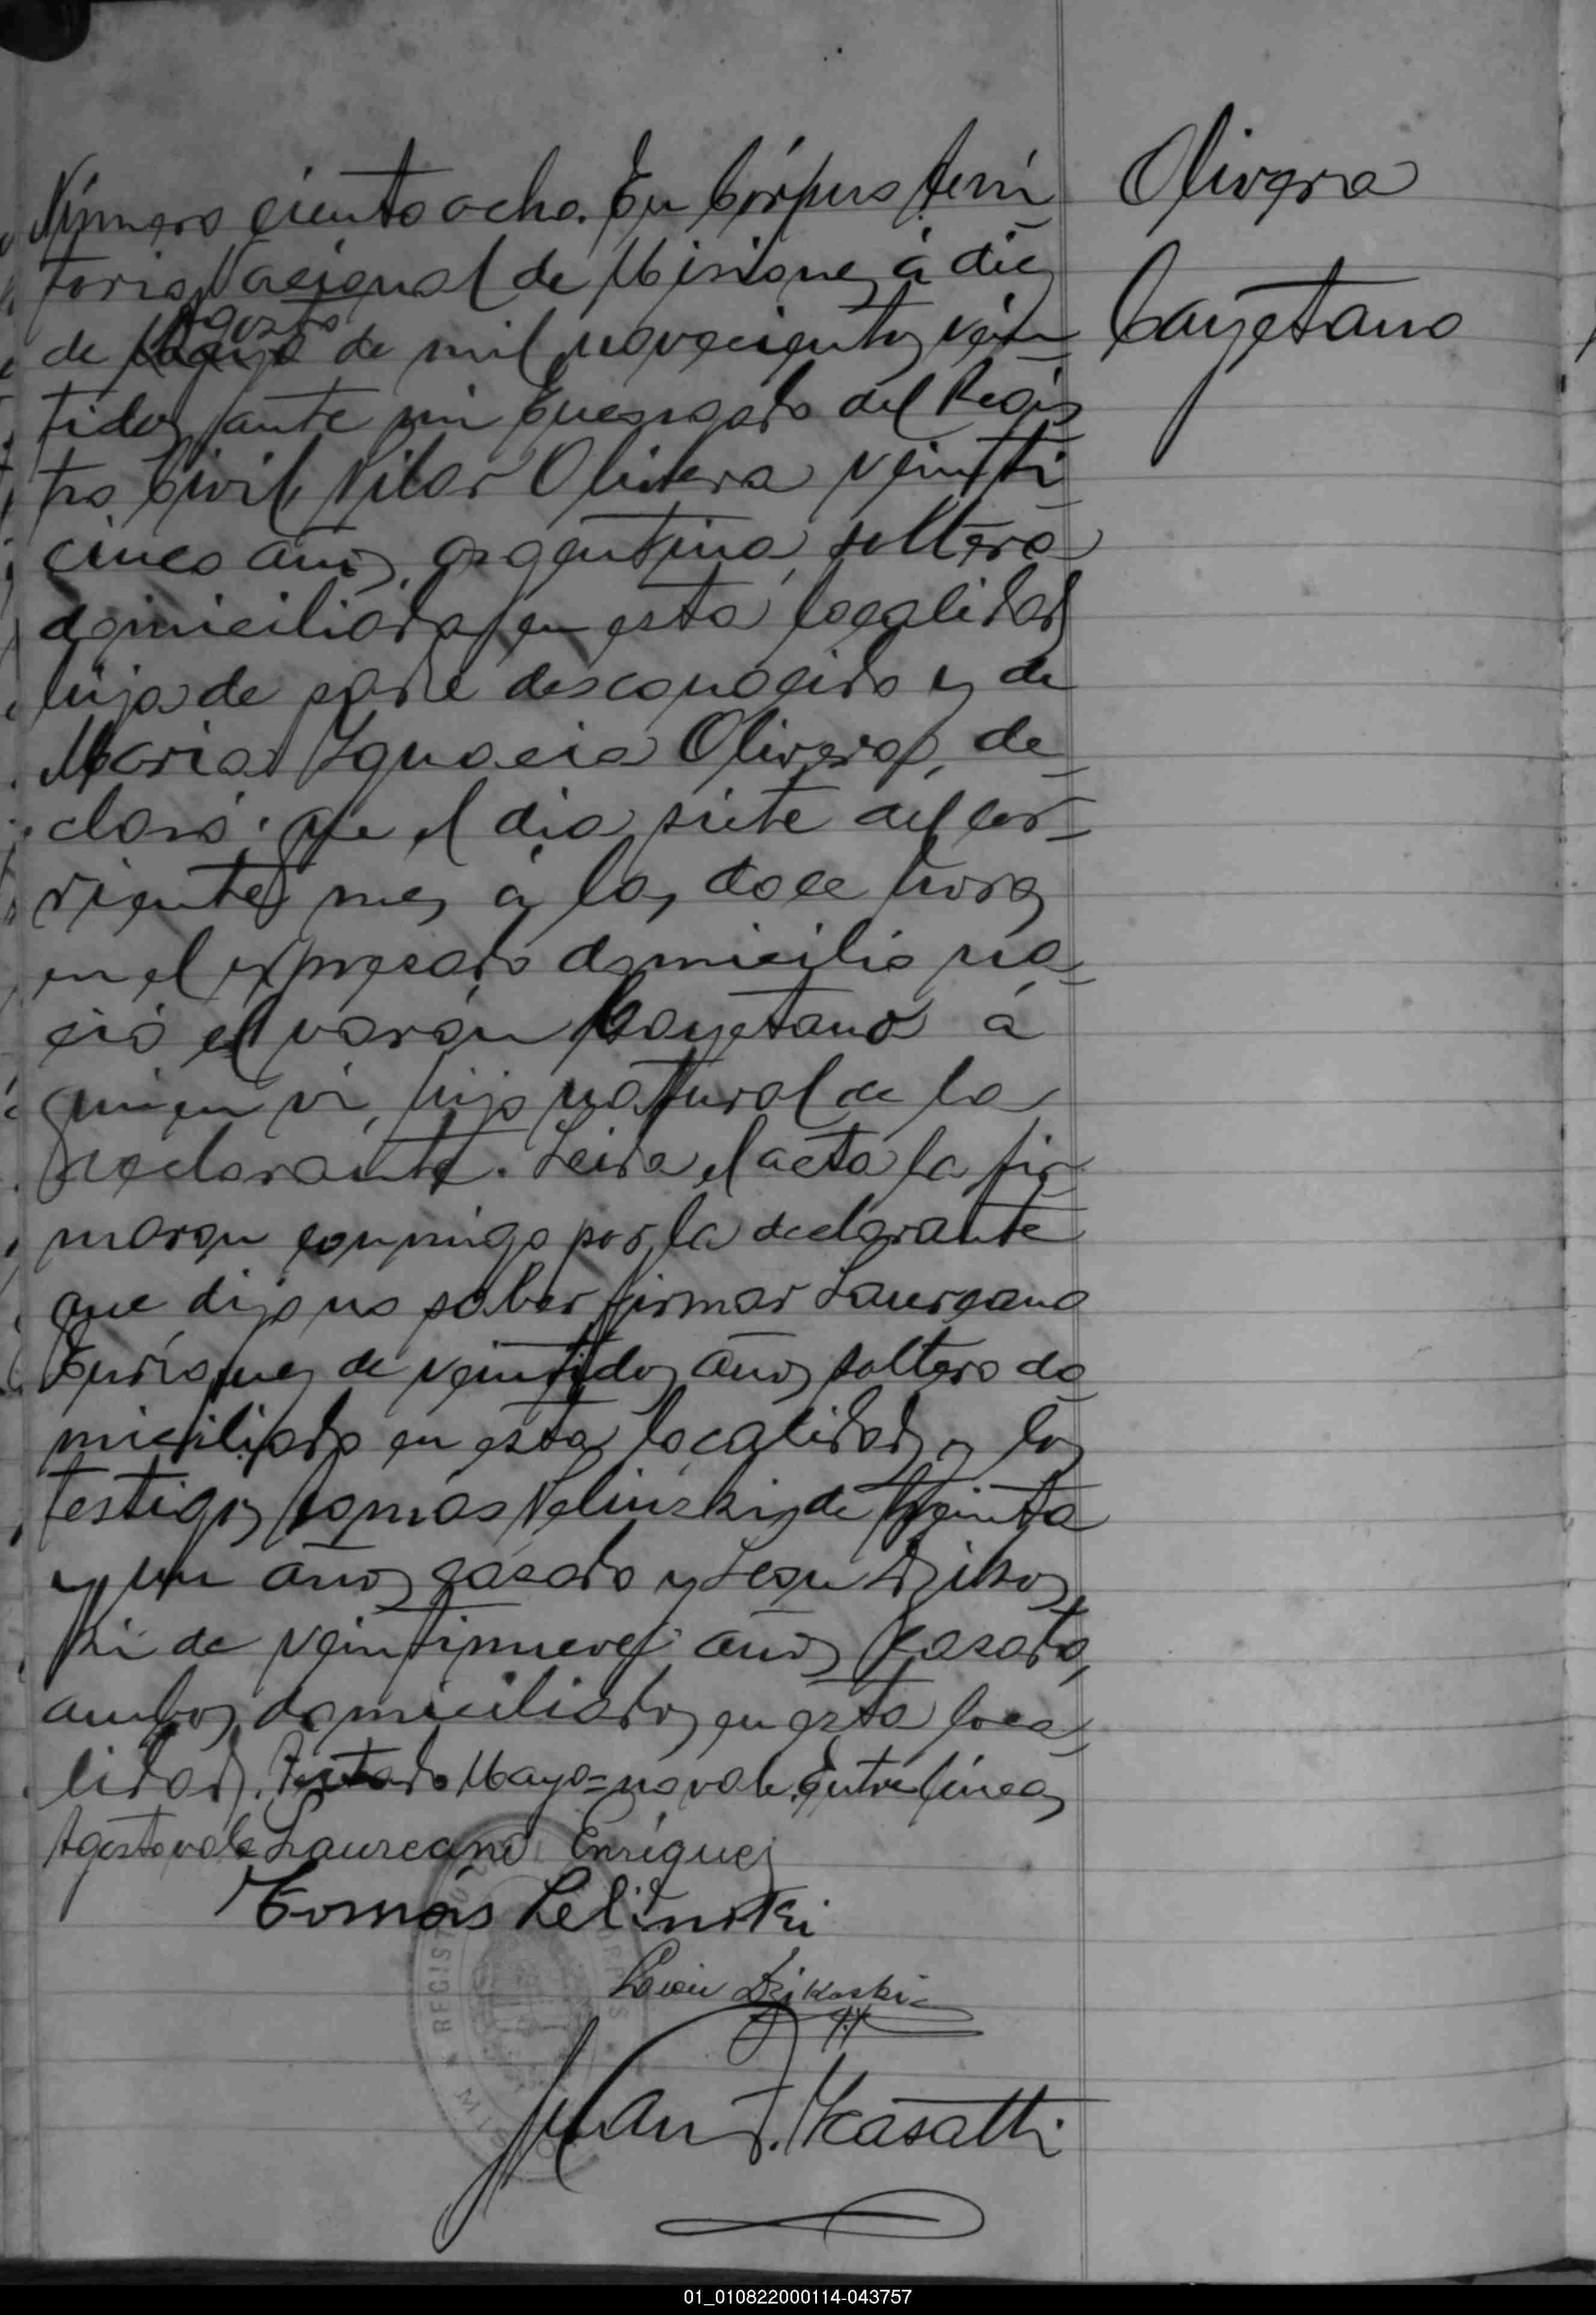 Olivera
Cayetano
Número ciento ocho. En Córpus Terri
torio Nacional de Misiones, á diez
Agosto
de Mayo de mil novecientos vein
tidos, ante mi Encargado del Regis
tro Civil, Pilar Olivera veinti
cinco años, argentina, soltera
domiciliada en esta localidad
hija de padre desconocido y de
Maria Ignacia Olivera, de
claró: que el dia siete del cor
riente mes á las doce horas
en el expresado domicilio na
ció el varón Cayetano á
quien vi, hijo natural de la
declarante. Leida el acta la fir
maron conmigo por la declarante
que dijo no saber firmar Laureano
Enríquez de veintidos años soltero do
miciliado en esta localidad y los
testigos Tomás Zelinski, de treinta
y un años casado y Leon Dzikos
ki de veintinueve años casado,
ambos domiciliados en esta loca
lidad. Testado Mayo = no vale. Entre líneas
Agosto vale Laureano Enríquez
Tomás Zelinski
Dzikoski
Juan J. Kasatti
REGISTRO
MISIONES
01_010822000114-043757